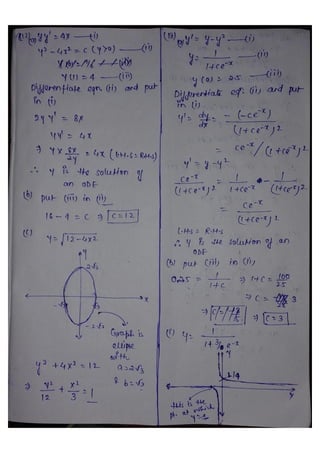 (12) (a) yy' = 4x —(i)
y² - 4x² = c (y>0) —(ii)
y(1) = 4 —(iii)
Differentiate eqn (ii) and put
in (i)
2yy' = 8x
yy' = 4x
⇒ y × 8x/2y = 4x (L.H.S = R.H.S)
∴ y is the solution of
an ODE
(b) put (iii) in (ii)
16 - 4 = c ⇒ c = 12
(c) y = √12-4x²
y
2√3
-√3
√3
x
-2√3
Graph is
ellipse
with
a = 2√3
& b = √3
y² + 4x² = 12
⇒ y²/12 + x²/3 = 1
(13) (a) y' = y - y² —(i)
y = 1/(1+ce^-x) —(ii)
y(0) = 0.25 —(iii)
Differentiate eqn (ii) and put
in (i)
y' = dy/dx = -(-ce^-x)/(1+ce^-x)²
= ce^-x/(1+ce^-x)²
y' = y - y²
ce^-x/(1+ce^-x)² = 1/(1+ce^-x) - 1/(1+ce^-x)²
= ce^-x/(1+ce^-x)²
L.H.S = R.H.S
∴ y is the solution of an
ODE
(b) put (iii) in (ii)
0.25 = 1/(1+c) ⇒ 1+c = 100/25
⇒ c = 3
⇒ c = 3
(c) y = 1/(1+3e^-x)
y
1/4
this is the
pt. at which